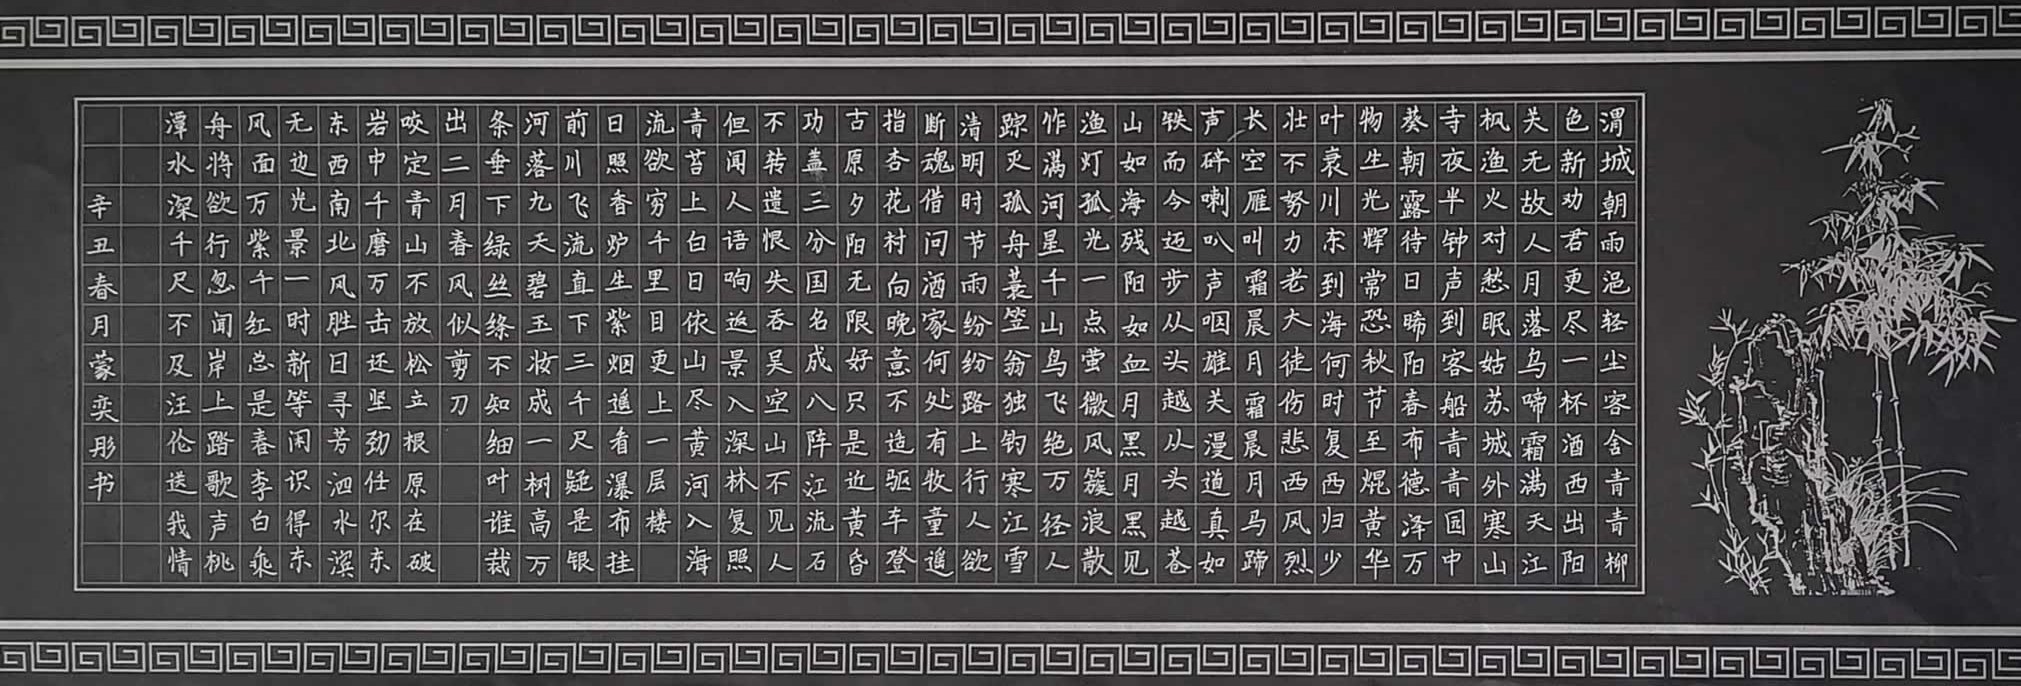 渭城朝雨浥轻尘客舍青青柳
色新劝君更尽一杯酒西出阳
关无故人月落乌啼霜满天江
枫渔火对愁眠姑苏城外寒山
寺夜半钟声到客船青青园中
葵朝露待日晞阳春布德泽万
物生光辉常恐秋节至焜黄华
叶衰川东到海何时复西归少
壮不努力老大徒伤悲西风烈
长空雁叫霜晨月霜晨月马蹄
声碎喇叭声咽雄关漫道真如
铁而今迈步从头越从头越苍
山如海残阳如血月黑月黑见
渔灯孤光一点萤微风簇浪散
作满河星千山鸟飞绝万径人
踪灭孤舟蓑笠翁独钓寒江雪
清明时节雨纷纷路上行人欲
断魂借问酒家何处有牧童遥
指杏花村向晚意不适驱车登
古原夕阳无限好只是近黄昏
功盖三分国名成八阵江流石
不转遗恨失吞吴空山不见人
但闻人语响返景入深林复照
青苔上白日依山尽黄河入海
流欲穷千里目更上一层楼
日照香炉生紫烟遥看瀑布挂
前川飞流直下三千尺疑是银
河落九天碧玉妆成一树高万
条垂下绿丝绦不知细叶谁裁
出二月春风似剪刀
咬定青山不放松立根原在破
岩中千磨万击还坚劲任尔东
东西南北风胜日寻芳泗水滨
无边光景一时新等闲识得东
风面万紫千红总是春李白乘
舟将欲行忽闻岸上踏歌声桃
潭水深千尺不及汪伦送我情
辛丑春月蒙奕彤书